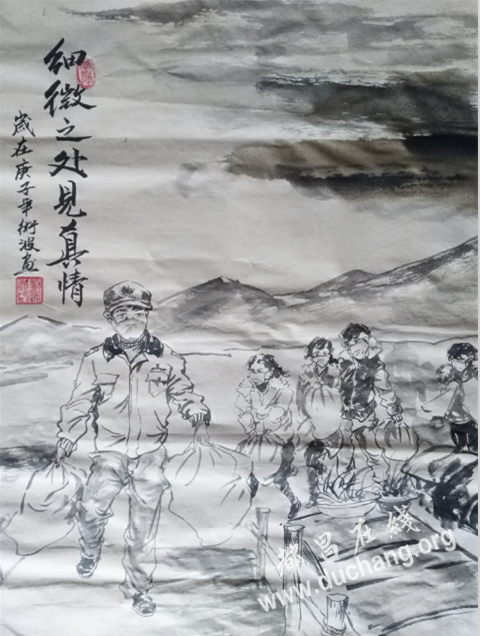 细微之处见真情
岁在庚子年衍波画
都昌在线
www.duchang.org